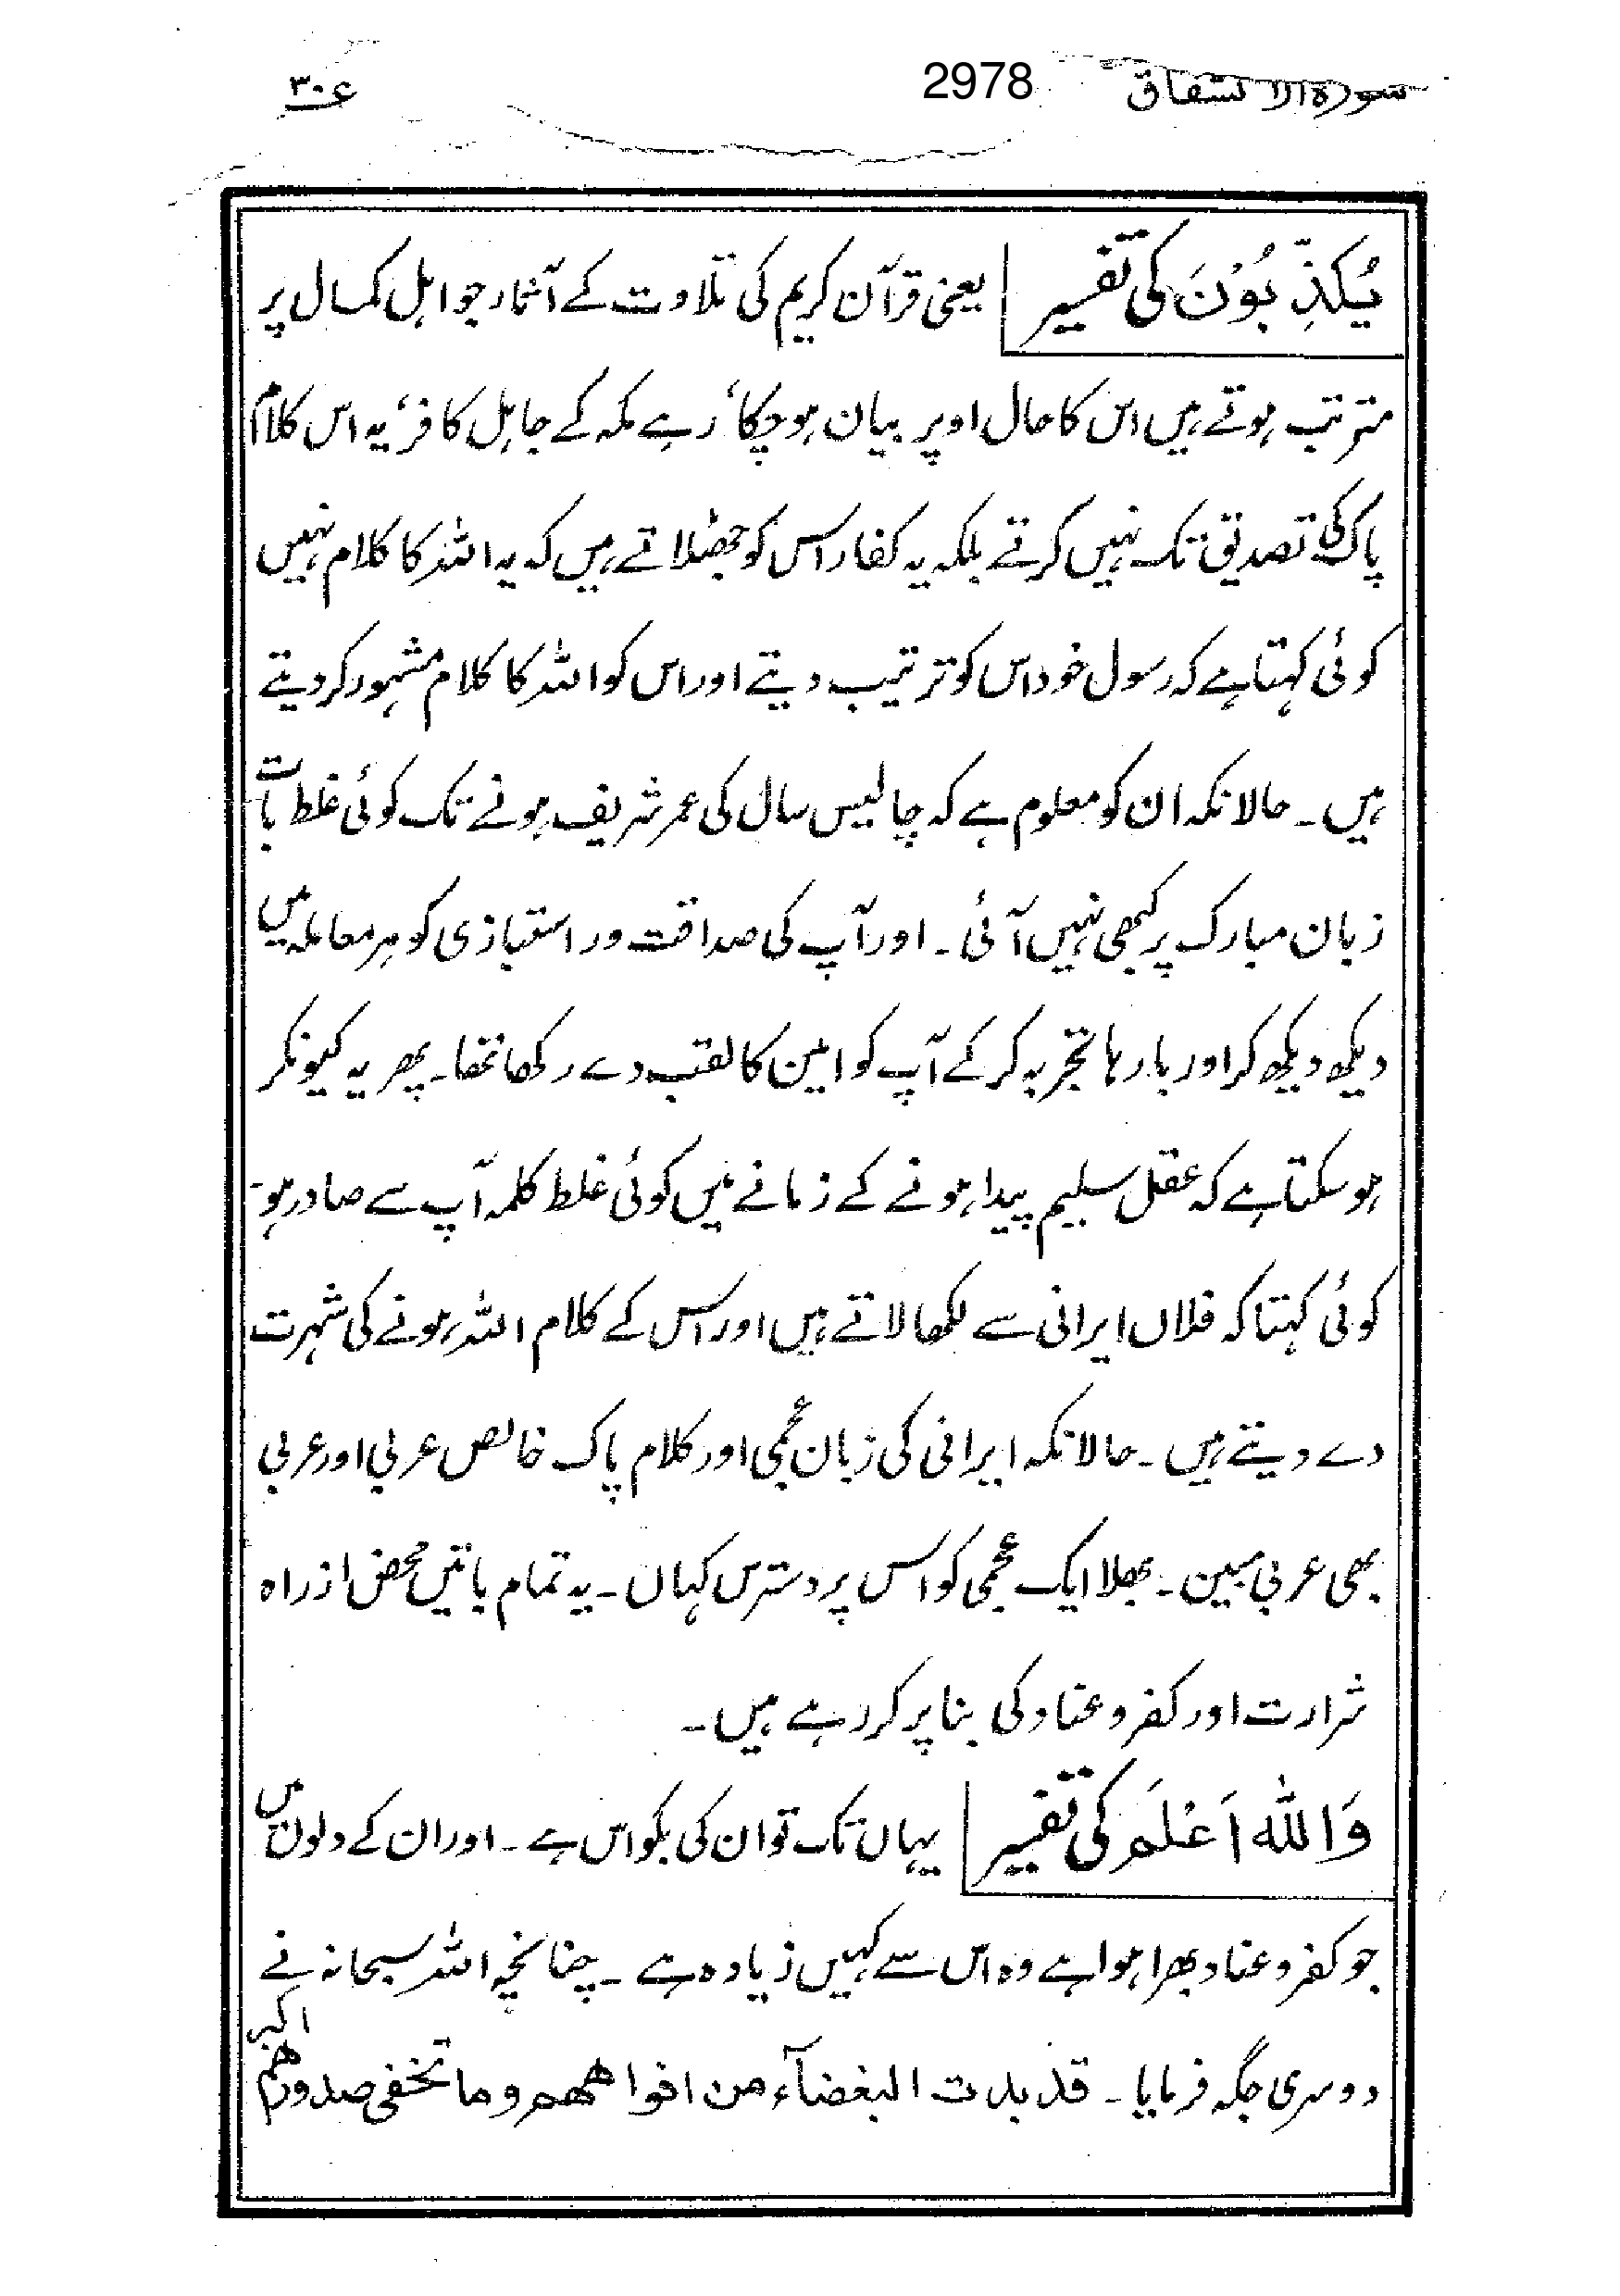 سورۃ الانشقاق 2978 عم ۳۰
یُکَذِّبُوْنَ کی تفسیر یعنی قرآن کریم کی تلاوت کے آثار جو اہل کمال پر
مترتب ہوتے ہیں اس کا حال اوپر بیان ہو چکا، رہے مکہ کے جاہل کافر، یہ اس کلام
پاک کی تصدیق تک نہیں کرتے بلکہ یہ کفار اس کو جھٹلاتے ہیں کہ یہ اللہ کا کلام نہیں
کوئی کہتا ہے کہ رسول خود اس کو ترتیب دیتے اور اس کو اللہ کا کلام مشہور کر دیتے
ہیں۔ حالانکہ ان کو معلوم ہے کہ چالیس سال کی عمر شریف ہونے تک کوئی غلط بات
زبان مبارک پر کبھی نہیں آئی۔ اور آپ کی صداقت و راستبازی کو ہر معاملہ میں
دیکھ دیکھ کر اور بارہا تجربہ کر کے آپ کو امین کا لقب دے رکھا تھا۔ پھر یہ کیونکر
ہو سکتا ہے کہ عقل سلیم پیدا ہونے کے زمانے میں کوئی غلط کلمہ آپ سے صادر ہو۔
کوئی کہتا کہ فلاں ایرانی سے لکھا لاتے ہیں اور اس کے کلام اللہ ہونے کی شہرت
دے دیتے ہیں۔ حالانکہ ایرانی کی زبان عجمی اور کلام پاک خالص عربی اور عربی
بھی عربی مبین۔ بھلا ایک عجمی کو اس پر دسترس کہاں۔ یہ تمام باتیں محض از راہ
شرارت اور کفر و عناد کی بنا پر کر رہے ہیں۔
وَاللہ اَعْلَم کی تفسیر یہاں تک تو ان کی بکواس ہے۔ اور ان کے دلوں میں
جو کفر و عناد بھرا ہوا ہے وہ اس سے کہیں زیادہ ہے۔ چنانچہ اللہ سبحانہ نے
دوسری جگہ فرمایا۔ قد بدت البغضآء من افواھھم وما تخفی صدورھم اکبر